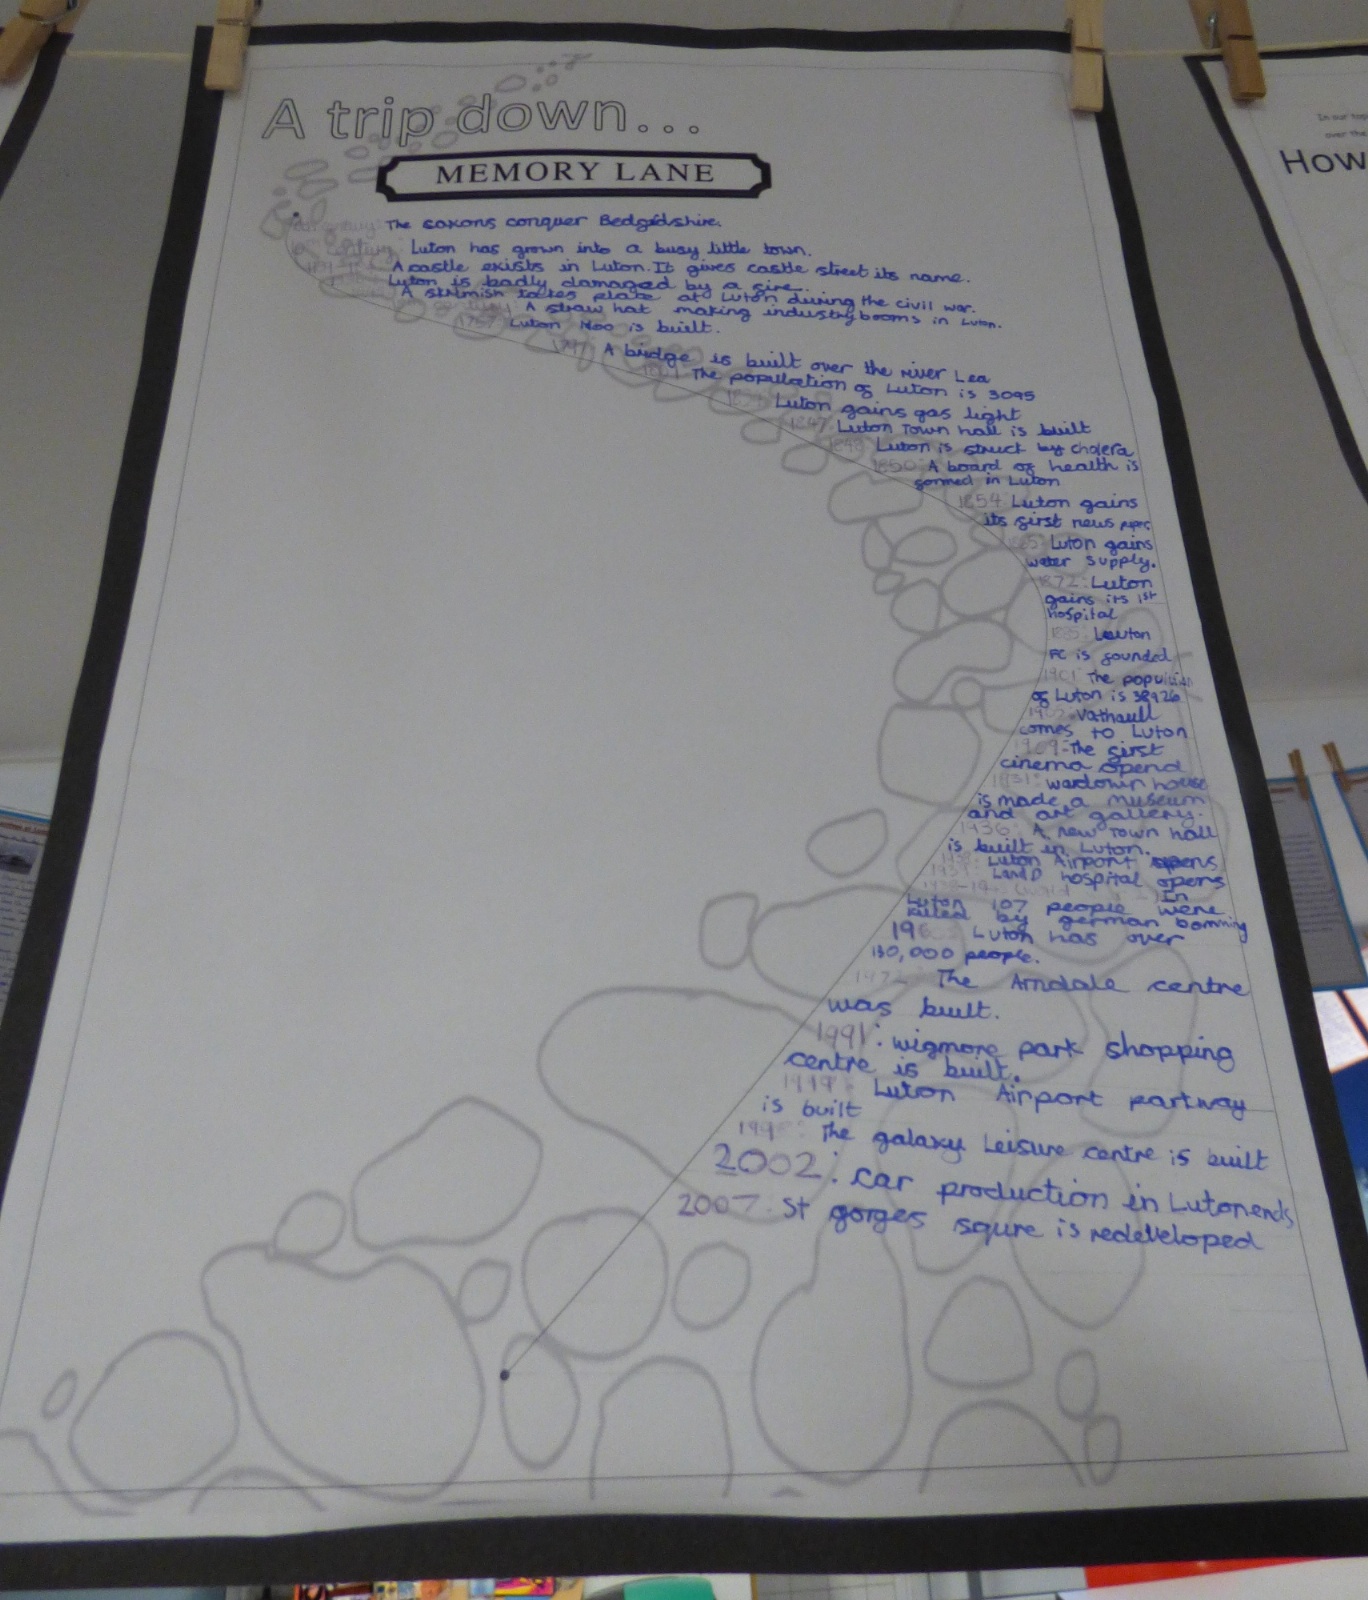 A trip down...
MEMORY LANE
century: The saxons conquer Bedgedshire.
century: Luton has grown into a busy little town.
A castle exists in Luton. It gives castle street its name.
Luton is badly damaged by a gire.
A skirmish takes place at Luton during the civil war.
A straw hat making industry booms in Luton.
1767 Luton Hoo is built.
A bridge is built over the river Lea
The population of Luton is 3095
Luton gains gas light
1847: Luton Town hall is built
1848: Luton is struct by cholera
1850: A board of health is
gormed in Luton
1854: Luton gains
its girst news paper
Luton gains
water supply.
1872: Luton
gains its 1st
hospital
1885: Leuton
FC is gounded
1901 The
of Luton is 38926
Vathaull
comes to Luton
1909: The girst
cinema opend
1931: wardown house
is made a museum
and art gallery.
1936: A new Town hall
is built in Luton.
Luton Airport opens
1939: LandD hospital opens
In
Luton 107 people were
killed by german bomming
Luton has over
130,000 people.
1972: The Arndale centre
was built.
1991: wigmore park shopping
centre is built.
Luton Airport partway
is built
The galaxy Leisure centre is built
2002: car production in Luton ends
2007. St gorges squre is redeveloped
In our
over the
How